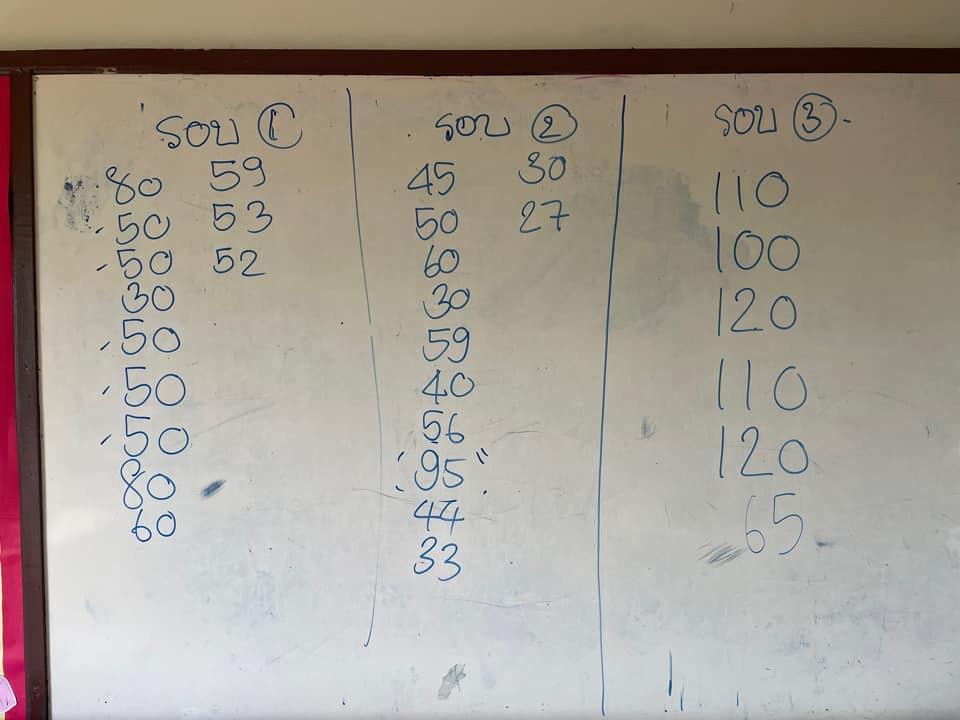 รอบ ①
80
- 50
- 50
30
- 50
- 50
- 50
80
60
59
53
52
รอบ ②
45
50
60
30
59
40
56
"95"
44
33
30
27
รอบ ③
110
100
120
110
120
65